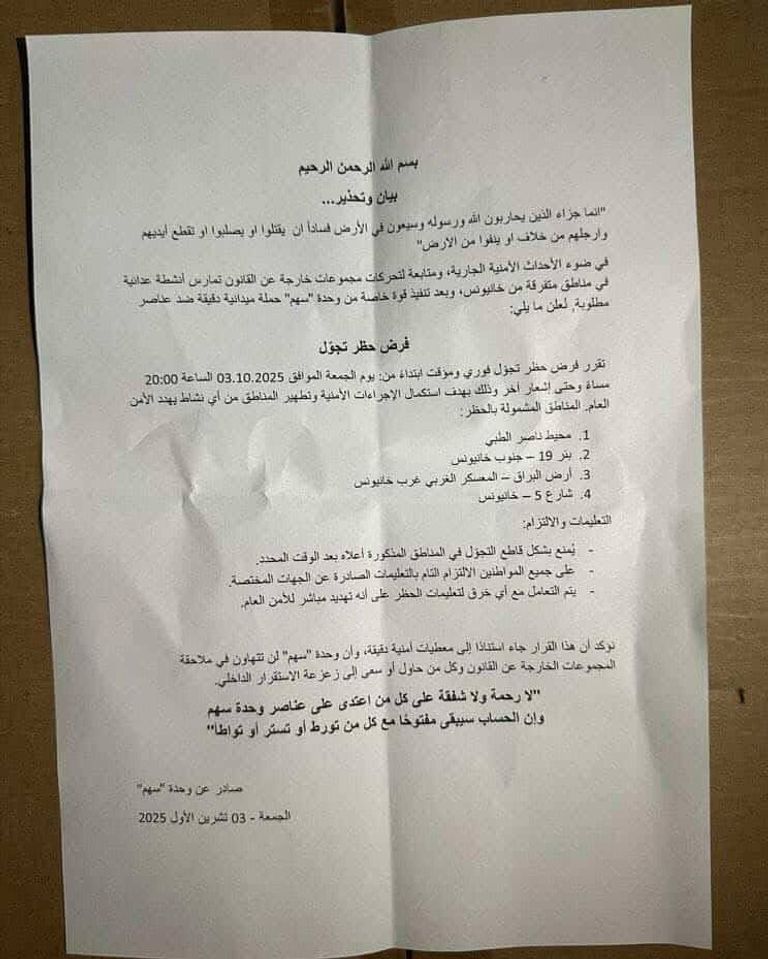 بسم الله الرحمن الرحيم
بيان وتحذير...
"انما جزاء الذين يحاربون الله ورسوله وسيعون في الأرض فساداً ان يقتلوا او يصلبوا او تقطع أيديهم
وارجلهم من خلاف او ينفوا من الارض"
في ضوء الأحداث الأمنية الجارية، ومتابعة لتحركات مجموعات خارجة عن القانون تمارس أنشطة عدائية
في مناطق متفرقة من خانيونس، وبعد تنفيذ قوة خاصة من وحدة "سهم" حملة ميدانية دقيقة ضد عناصر
مطلوبة, لعلن ما يلي:
فرض حظر تجوّل
تقرر فرض حظر تجوّل فوري ومؤقت ابتداءً من: يوم الجمعة الموافق 03.10.2025 الساعة 20:00
مساءً وحتى إشعار آخر وذلك بهدف استكمال الإجراءات الأمنية وتطهير المناطق من أي نشاط يهدد الأمن
العام. المناطق المشمولة بالحظر:
1. محيط ناصر الطبي
2. بئر 19 – جنوب خانيونس
3. أرض البراق – المعسكر الغربي غرب خانيونس
4. شارع 5 – خانيونس
التعليمات والالتزام:
- يُمنع بشكل قاطع التجوّل في المناطق المذكورة أعلاه بعد الوقت المحدد.
- على جميع المواطنين الالتزام التام بالتعليمات الصادرة عن الجهات المختصة.
- يتم التعامل مع أي خرق لتعليمات الحظر على أنه تهديد مباشر للأمن العام.
نؤكد أن هذا القرار جاء استنادًا إلى معطيات أمنية دقيقة، وأن وحدة "سهم" لن تتهاون في ملاحقة
المجموعات الخارجة عن القانون وكل من حاول أو سعى إلى زعزعة الاستقرار الداخلي.
"لا رحمة ولا شفقة على كل من اعتدى على عناصر وحدة سهم
وإن الحساب سيبقى مفتوحًا مع كل من تورط أو تستر أو تواطأ"
صادر عن وحدة "سهم"
الجمعة - 03 تشرين الأول 2025